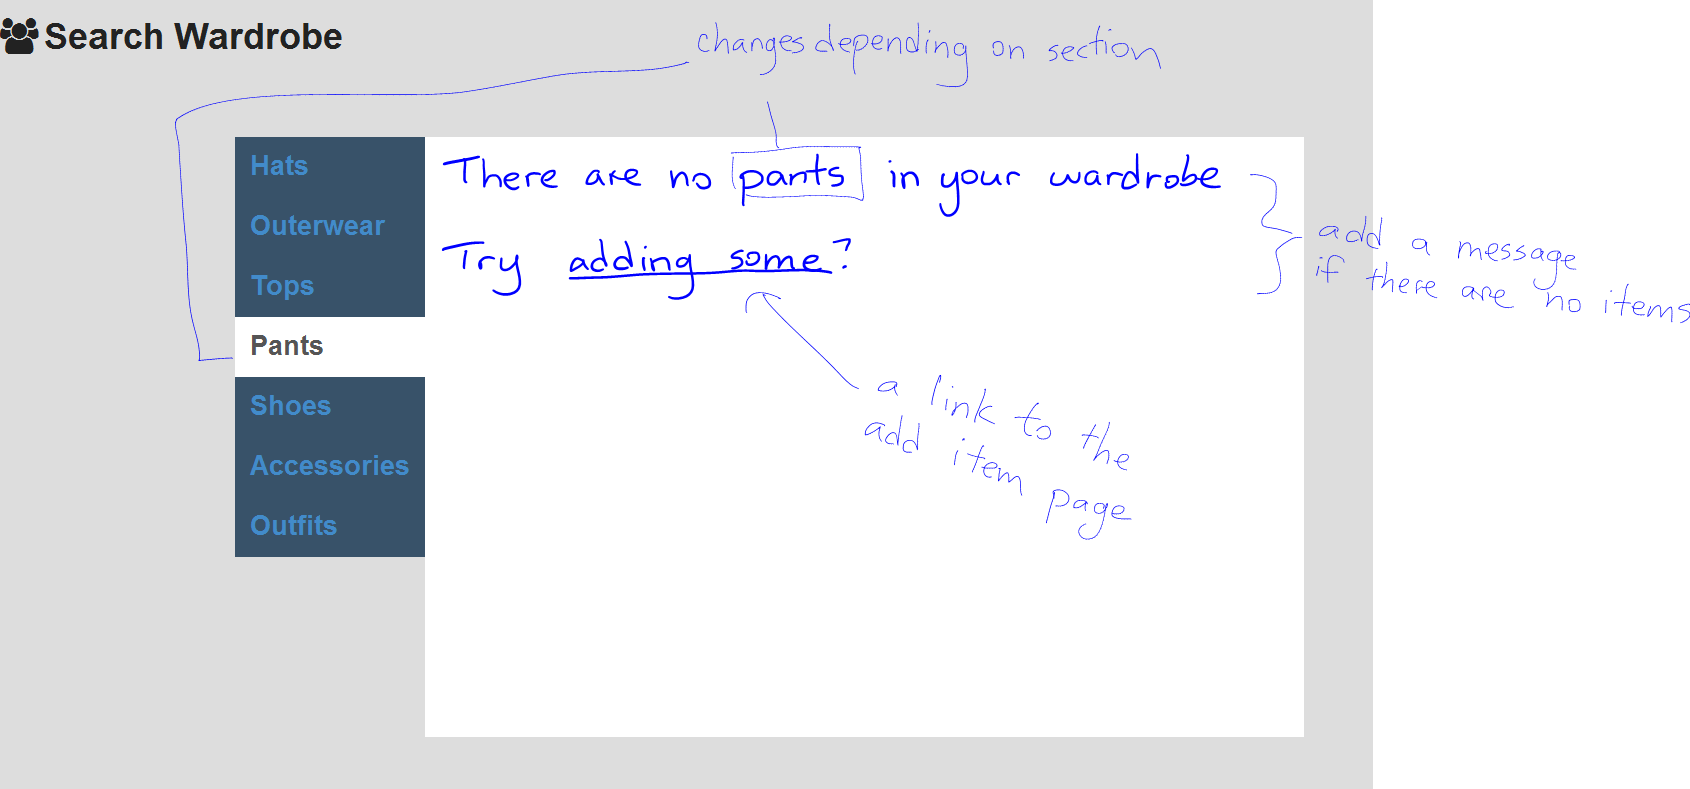 Search Wardrobe
changes depending on section
Hats
Outerwear
Tops
Pants
Shoes
Accessories
Outfits
There are no pants in your wardrobe
Try adding some?
add a message
if there are no items
a link to the
add item page